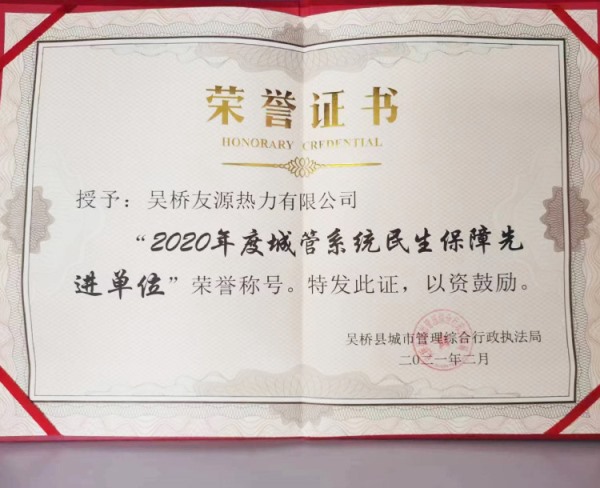 荣誉证书
HONORARY CREDENTIAL
授予：吴桥友源热力有限公司
“2020年度城管系统民生保障先
进单位”荣誉称号。特发此证，以资鼓励。
吴桥县城市管理综合行政执法局
二〇二一年二月